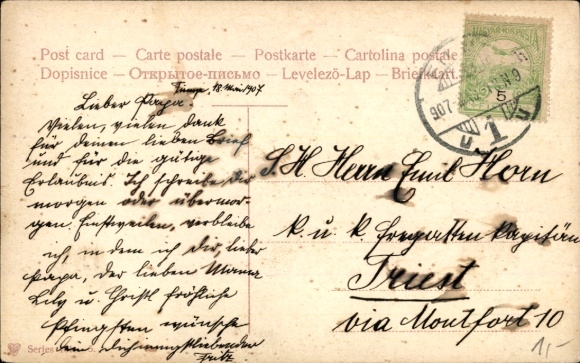 Post card — Carte postale — Postkarte — Cartolina postale
Dopisnice — Открытое-письмо — Levelező-Lap — Briefkaart.
Fiume, 18. Mai 1907
Lieber Papa!
Vielen, vielen dank
für deinen lieben Brief
und für die gütige
Erlaubnis. Ich schreibe Dir
morgen oder übermor-
gen. Einstweilen, verbleibe
ich, in dem ich Dir, lieber
Papa, der lieben Mama
Lily u. Christl fröhliche
Pfingsten wünsche
dein Dich innigstliebender
Fritz
S. H. Herrn Emil Horn
k. u. k. Fregatten Kapitän
Triest
via Montfort 10
5
907
1
Series
1,-